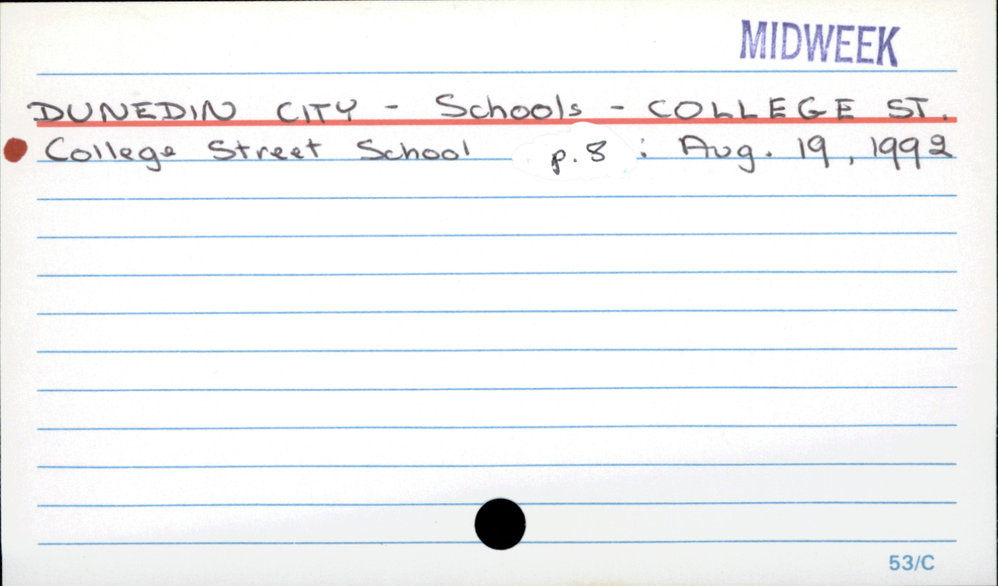 MIDWEEK
DUNEDIN CITY - Schools - COLLEGE ST.
College Street School p. 8 : Aug. 19, 1992
53/C